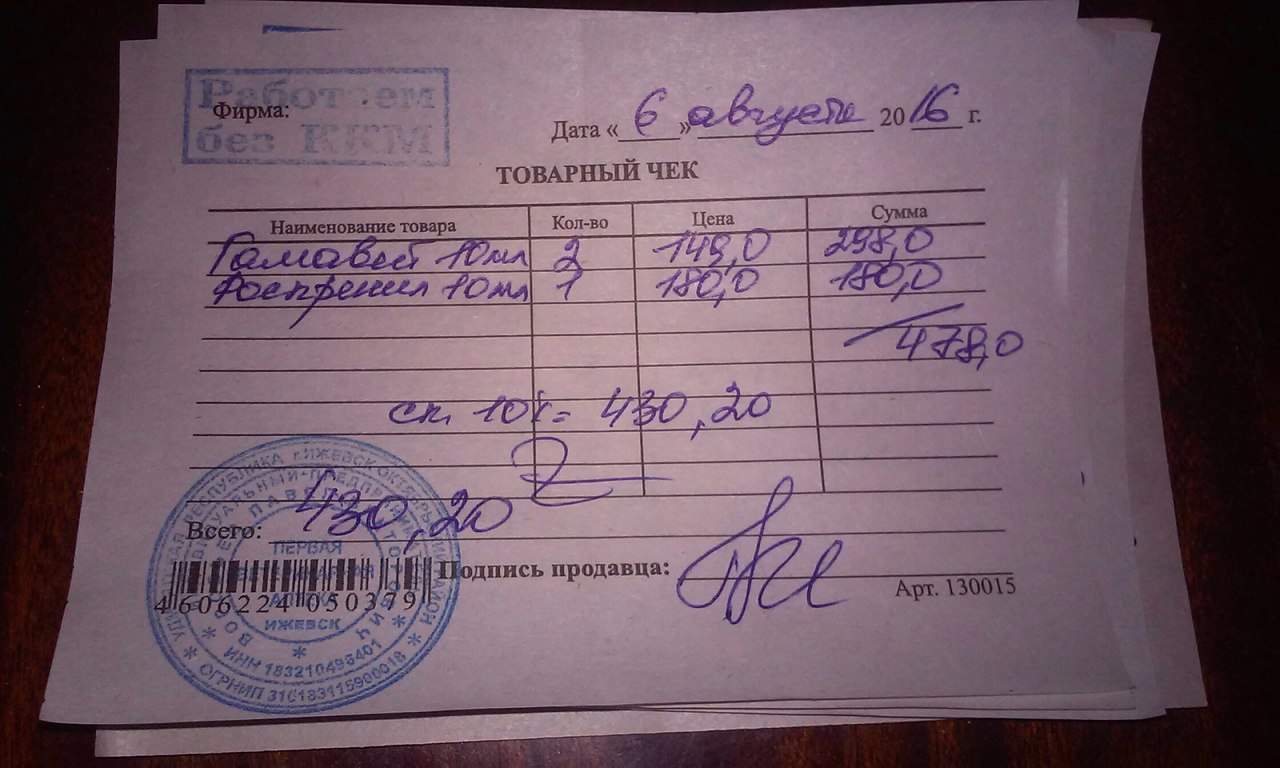 Работаем
без ККМ
Фирма:
Дата « 6 » августа 2016 г.
ТОВАРНЫЙ ЧЕК
Наименование товара Кол-во Цена Сумма
Гамавет 10мл 2 149,0 298,0
Фоспренил 10мл 1 180,0 180,0
478,0
ск. 10% = 430,20
Всего: 430,20
Подпись продавца:
Арт. 130015
4 606224 050379
ПЕРВАЯ
АПТЕКА
ИЖЕВСК
РЕСПУБЛИКА г.ИЖЕВСК
ИНН
ОГРНИП